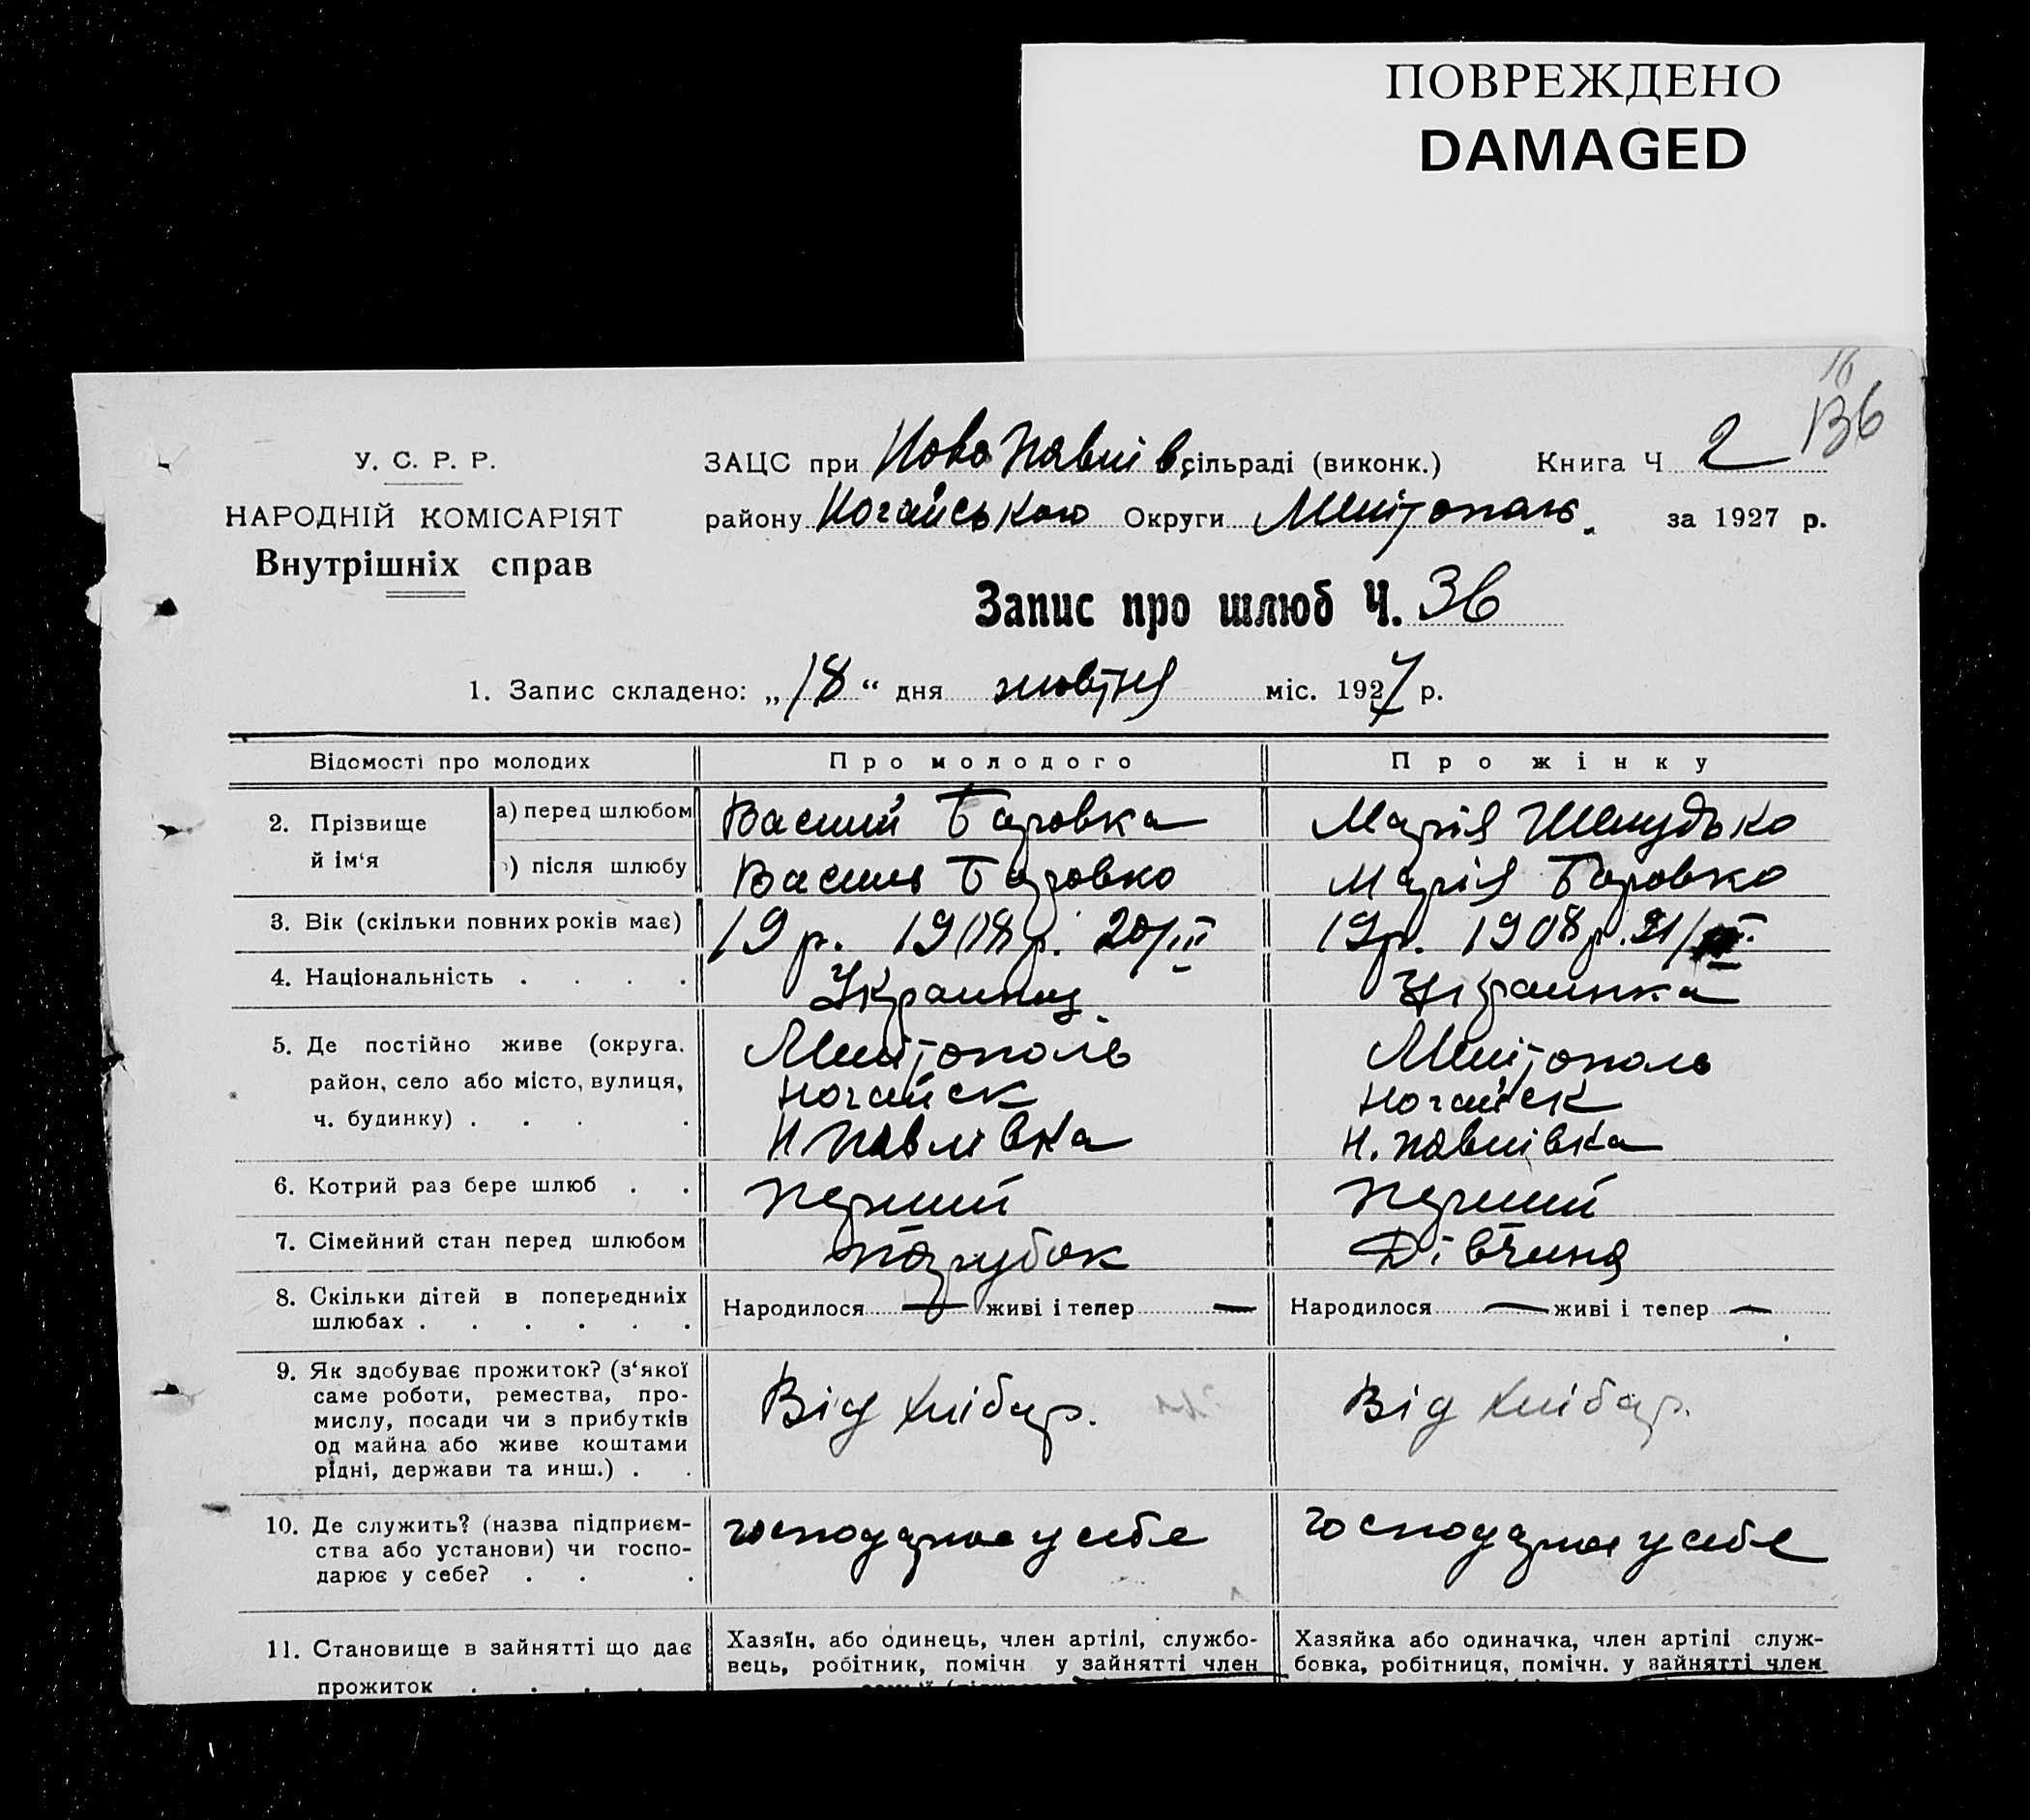 ПОВРЕЖДЕНО
DAMAGED
136
У. С. Р. Р.
НАРОДНІЙ КОМІСАРІЯТ
Внутрішніх справ
ЗАЦС при Ново Павлів. сільраді (виконк.) Книга Ч 2
району Ногайського Округи Мелітополь. за 1927 р.
Запис про шлюб Ч. 36
1. Запис складено: „18“ дня жовтня міс. 1927 р.
Відомості про молодих Про молодого Про жінку
2. Прізвище й ім‘я
а) перед шлюбом Василий Баровка Марія Шелудько
) після шлюбу Василь Баровко Марія Баровко
3. Вік (скільки повних років має) 19 р. 1908 р. 20/III 19 р. 1908 р. 21/
4. Національність . . . . Украинец Украинка
5. Де постійно живе (округа, район, село або місто, вулиця, ч. будинку) . . . .
Мелітополь Мелітополь
Ногайск Ногайск
Н Павлівка Н. Павлівка
6. Котрий раз бере шлюб . . Перший Перший
7. Сімейний стан перед шлюбом Парубок Дівчина
8. Скільки дітей в попередниіх шлюбах . . . . . .
Народилося — живі і тепер — Народилося — живі і тепер —
9. Як здобуває прожиток? (з‘якої
саме роботи, ремества, про-
мислу, посади чи з прибутків
од майна або живе коштами
рідні, держави та инш.) . .
Від хлібар. Від хлібар.
10. Де служить? (назва підприєм-
ства або установи) чи госпо-
дарює у себе? . . .
господарює у себе господарює у себе
11. Становище в зайнятті що дає
прожиток . . . .
Хазяїн, або одинець, член артілі, службо-
вець, робітник, помічн у зайнятті член
Хазяйка або одиначка, член артілі служ-
бовка, робітниця, помічн. у зайнятті член